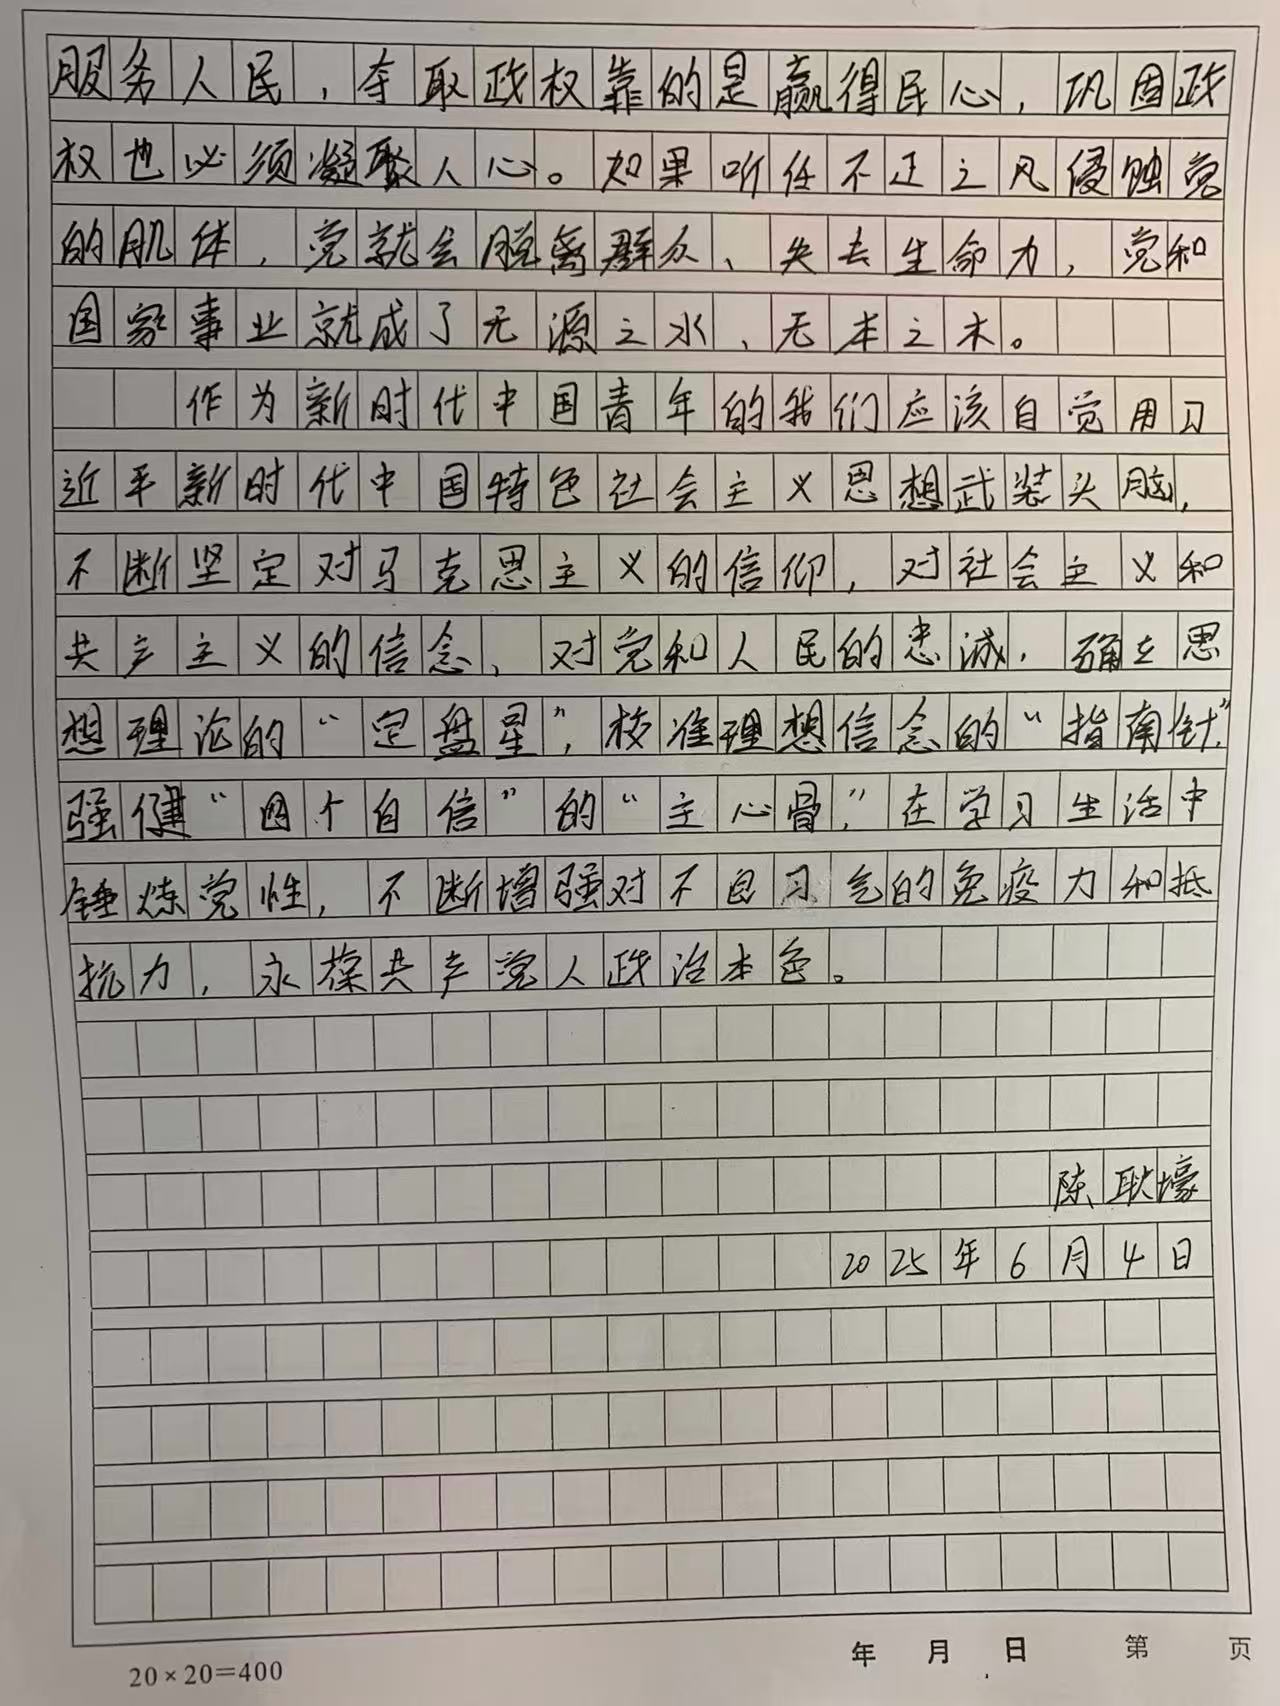 服务人民,夺取政权靠的是赢得民心,巩固政
权也必须凝聚人心。如果听任不正之风侵蚀党
的肌体,党就会脱离群众、失去生命力,党和
国家事业就成了无源之水、无本之木。
作为新时代中国青年的我们应该自觉用习
近平新时代中国特色社会主义思想武装头脑,
不断坚定对马克思主义的信仰,对社会主义和
共产主义的信念、对党和人民的忠诚,确立思
想理论的“定盘星”,校准理想信念的“指南针”,
强健“四个自信”的“主心骨”,在学习生活中
锤炼党性,不断增强对不良习气的免疫力和抵
抗力,永葆共产党人政治本色。
陈耿壕
2025年6月4日
20×20=400
年 月 日 第 页